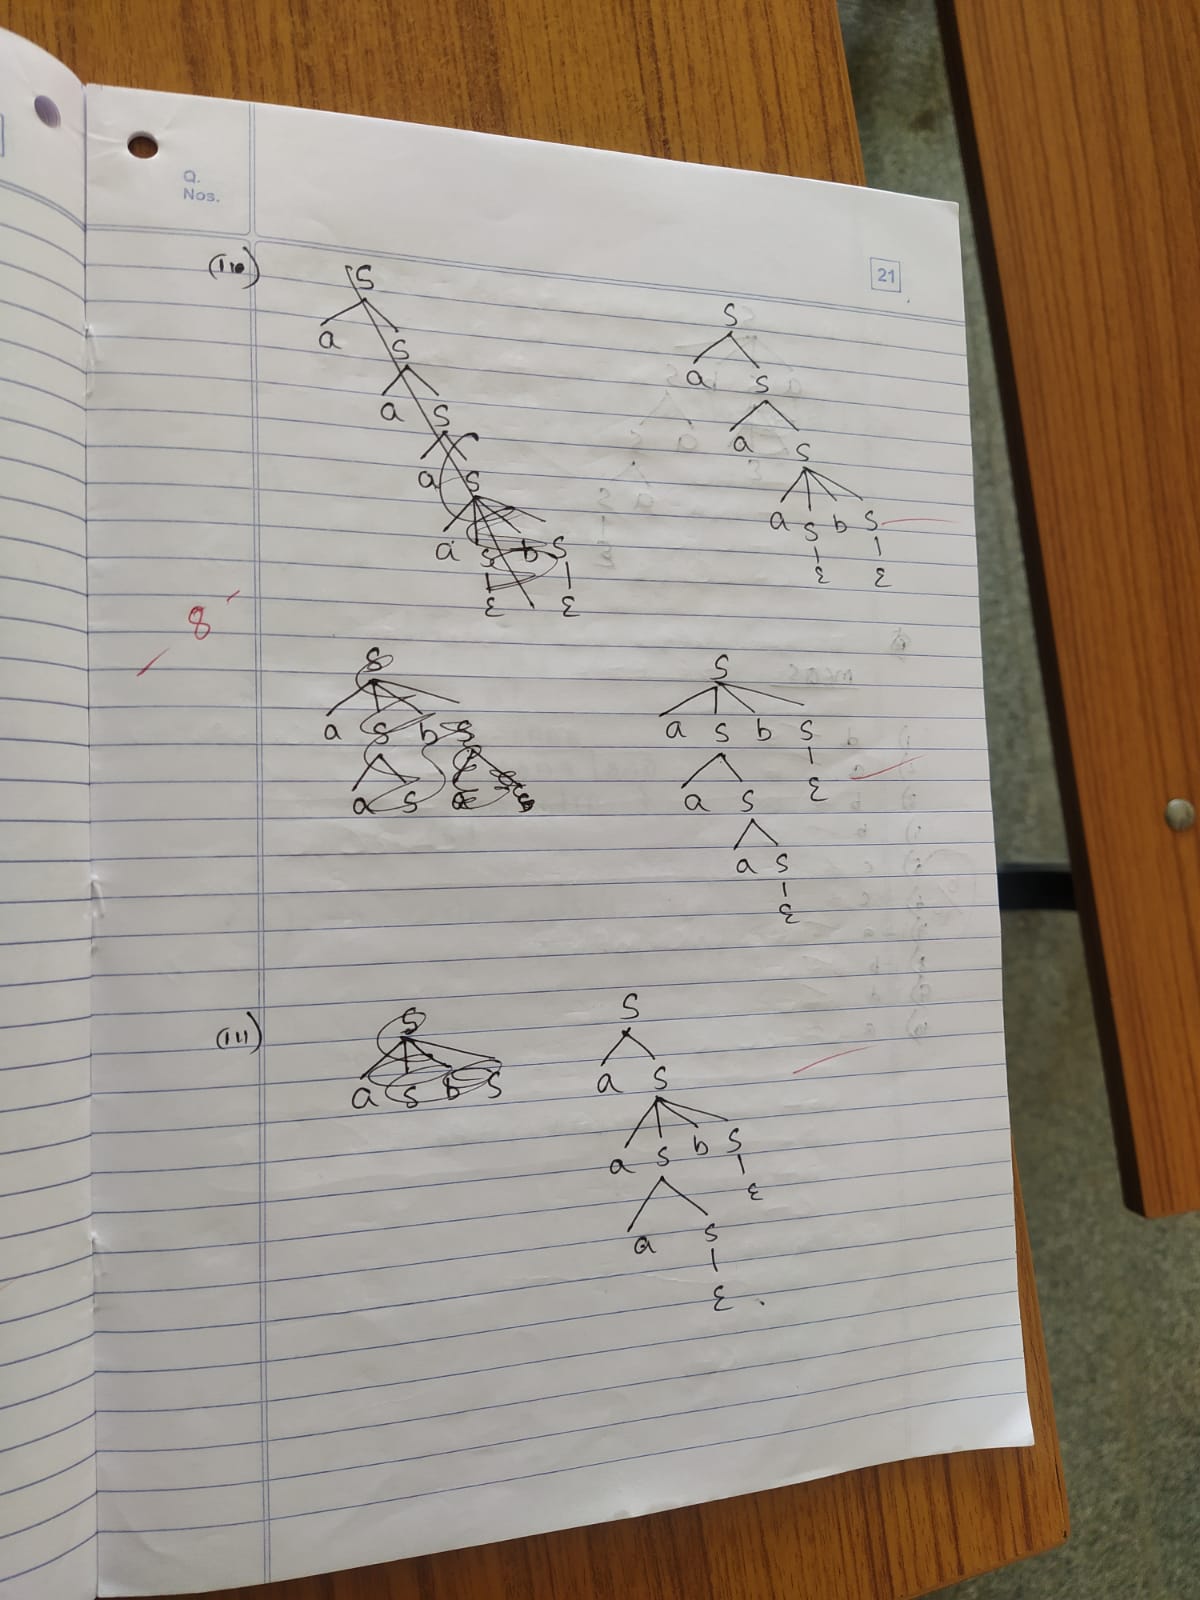 Q.
Nos.
21
(ii)
S
a S
a S
a S
a S b S
ε ε
S
a S
a S
a S b S
ε ε
8
S
a S b S
a S
S
a S b S
a S ε
a S
ε
(iii)
S
a S b S
S
a S
a S b S
ε
a S
ε